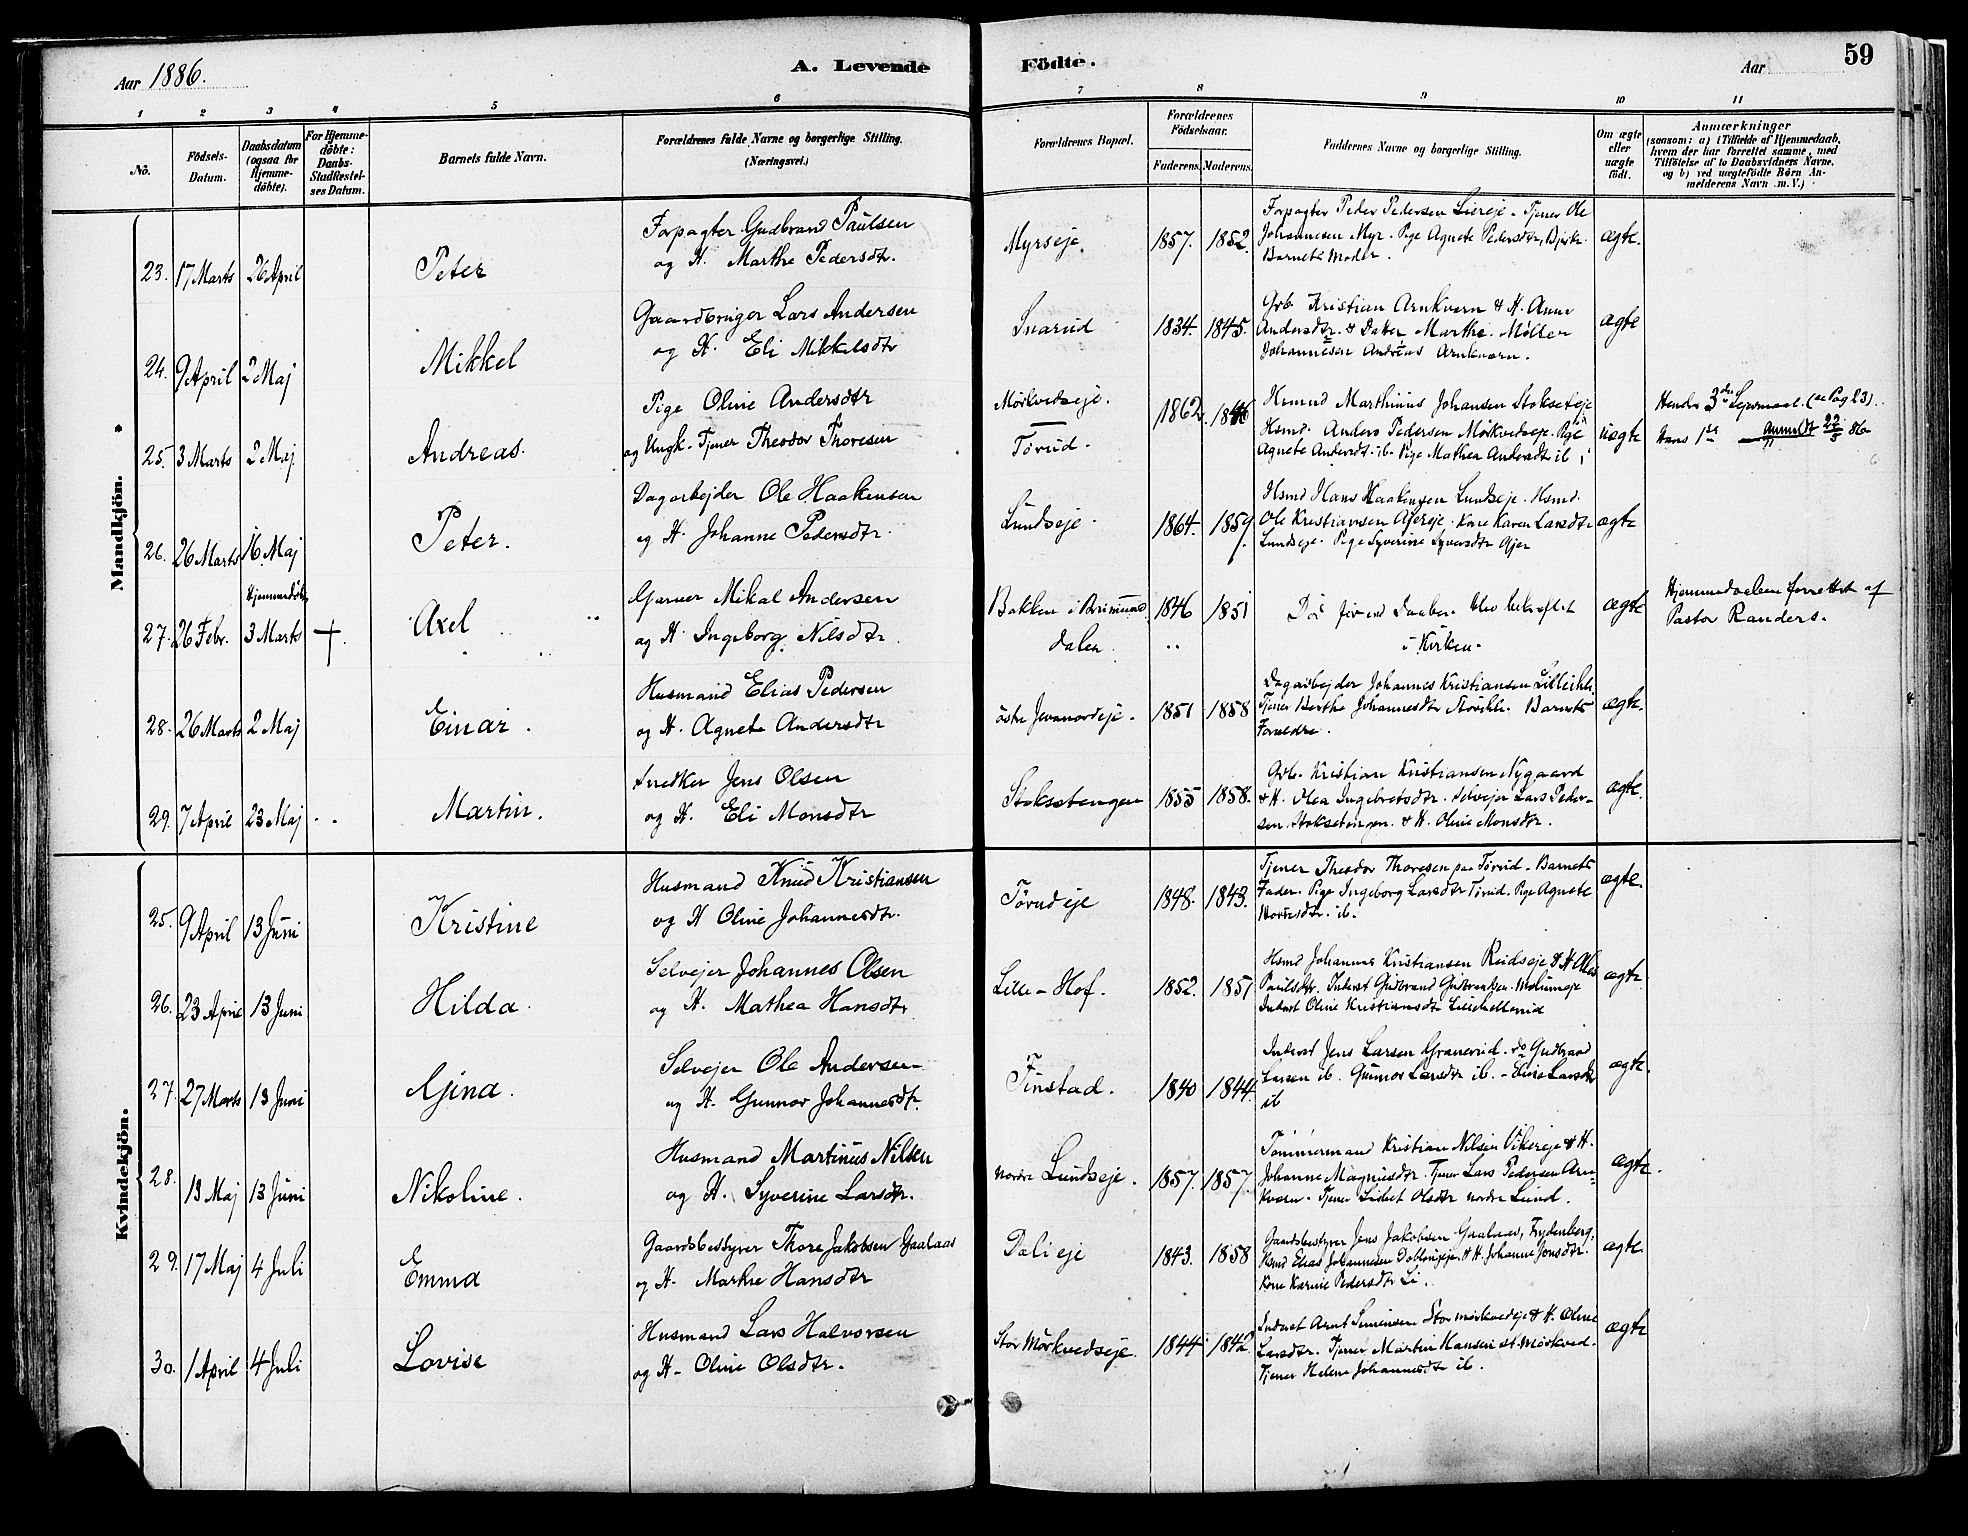 Aar 1886.
A. Levende
Födte.
Aar
59
1 2 3 4 5 6 7 8 9 10 11
No.
Födsels-
Datum.
Daabsdatum
(ogsaa for
Hjemme-
döbte).
For Hjemme-
döbte:
Daabs-
Stadfæstel-
ses Datum.
Barnets fulde Navn.
Forældrenes fulde Navne og borgerlige Stilling.
(Næringsvei.)
Forældrenes Bopæl.
Forældrenes
Födselsaar.
Faderens. Moderens.
Faddernes Navne og borgerlige Stilling.
Om ægte
eller
uægte
födt.
Anmærkninger
(saasom: a) i Tilfælde af Hjemmedaab,
hvem der har forrettet samme, med
Tilföielse af to Daabsvidners Navne,
og b) ved uægtefödte Börn An-
melderens Navn m. V.)
Mandkjön.
23. 17 Marts 26 April Peter
Forpagter Gudbrand Paulsen
og H. Marthe Pedersdtr.
Myrseje. 1857. 1852.
Forpagter Peder Pedersen Liereje. Tjener Ole
Johannesen Myr. Pige Agnete Pedersdtr,
Barnets Moder.
ægte.
24. 9 April 2 Maj Mikkel
Gaardbruger Lars Andersen
og H. Eli Mikkelsdtr
Snarud 1834. 1845.
Grb. Kristian Arnkværn & H. Anne
Andersdtr. & Datter Marthe. Møller
Johannesen Andreas Arnkværn.
ægte
25. 3 Marts 2 Maj. Andreas.
Pige Oline Andersdtr
og Ungk. Tjener Theodor Thoresen
Mørkvedseje.
Tørud. 1862. 1846
Husmd Marthinus Johansen Stokseteje
Husmd. Anders Pedersen Mörkvedseje. Pige
Agnete Andersdt. ib. Pige Mathea Andersdt ib
uægte
Hendes 3die Lejermaal. (se Pag 23).
Hans 1ste anmeldt 22/5 86
26. 26 Marts 16 Maj Peter.
Dagarbejder Ole Haakensen
og H. Johanne Pedersdtr.
Lundseje. 1864. 1859.
Husmd Hans Haakensen Lundseje. Husmd.
Ole Kristiansen Ajereje. Kone Karen Larsdtr
Lundseje. Pige Syverine Syversdtr Ajer
ægte
27. 26 Febr. Hjemmedöbt 3 Marts + Axel
Garver Mikal Andersen
og H. Ingeborg Nilsdtr.
Bakken i Brumund
dalen 1846 1851
Död förend Daaben blev bekræftet
i Kirken.
ægte
Hjemmedaaben forrettet af
Pastor Randers.
28. 26 Marts 2 Maj Einar.
Husmand Elias Pedersen
og H. Agnete Andersdtr
östre Jevanordeje. 1851 1858
Dagarbejder Johannes Kristiansen
Tjener Berthe Johannesdtr Barnets
Forældre.
ægte.
29. 7 April 23 Maj Martin.
Snedker Jens Olsen
og H. Eli Monsdtr
Stoksetengen 1855 1858.
Grb. Kristian Kristiansen Nygaard
& H. Olea Ingebretsdtr. Selvejer Lars Peder-
sen Stoksetengen. & H. Oline Monsdtr.
ægte.
Kvindekjön.
25. 9 April 13 Juni Kristine
Husmand Knud Kristiansen
og H Oline Johannesdtr.
Tørudeje 1848. 1843.
Tjener Theodor Thoresen paa Tørud. Barnets
Fader. Pige Ingeborg Larsdtr Tørud. Pige Agnete
ib.
ægte.
26. 23 April 13 Juni Hilda.
Selvejer Johannes Olsen
og H. Mathea Hansdtr
Lille-Hof. 1852. 1851
Husmd Johannes Kristiansen Rudseje & H Olea
Paulsdtr. Inderst Gudbrand Gudbrandsen
Inderst Oline Kristiansdtr
ægte.
27. 27 Marts 13 Juni Gina.
Selvejer Ole Andersen
og H. Gunnor Johannesdtr.
Finstad. 1840 1844.
Inderst Jens Larsen Granerud. do Gudbrand
Larsen ib. Gunnor Larsdtr ib. - Larsdtr
ib
ægte.
28. 19 Maj 13 Juni Nikoline.
Husmand Martinus Nilsen
og H. Syverine Larsdtr.
nordre Lundseje. 1857. 1857.
Tømmermand Kristian Nilsen Vikereje & H.
Johanne Magnusdtr. Tjener Lars Pedersen Arn-
kværn. Tjener Lisbet Olsdtr nordre Lund.
ægte.
29. 17 Maj 4 Juli Emma
Gaardsbestyrer Thore Jakobsen Gaalaas
og H. Marthe Hansdtr
Dalieje 1843. 1858
Gaardsbestyrer Jens Jakobsen Gaalaas, Frydenberg,
Husmd Elias Johannesen & H. Johanne Jonsdtr.
Kone Karine Pedersdtr Li.
ægte.
30. 1 April 4 Juli Lovise
Husmand Lars Halvorsen
og H. Oline Olsdtr.
Stor Mörkvedseje. 1844. 1842.
Inderst Arnt Simensen Stormörkvedeje & H. Oline
Larsdtr. Tjener Martin Hansen st. Mörkved.
Tjener Helene Johannesdtr ib.
ægte